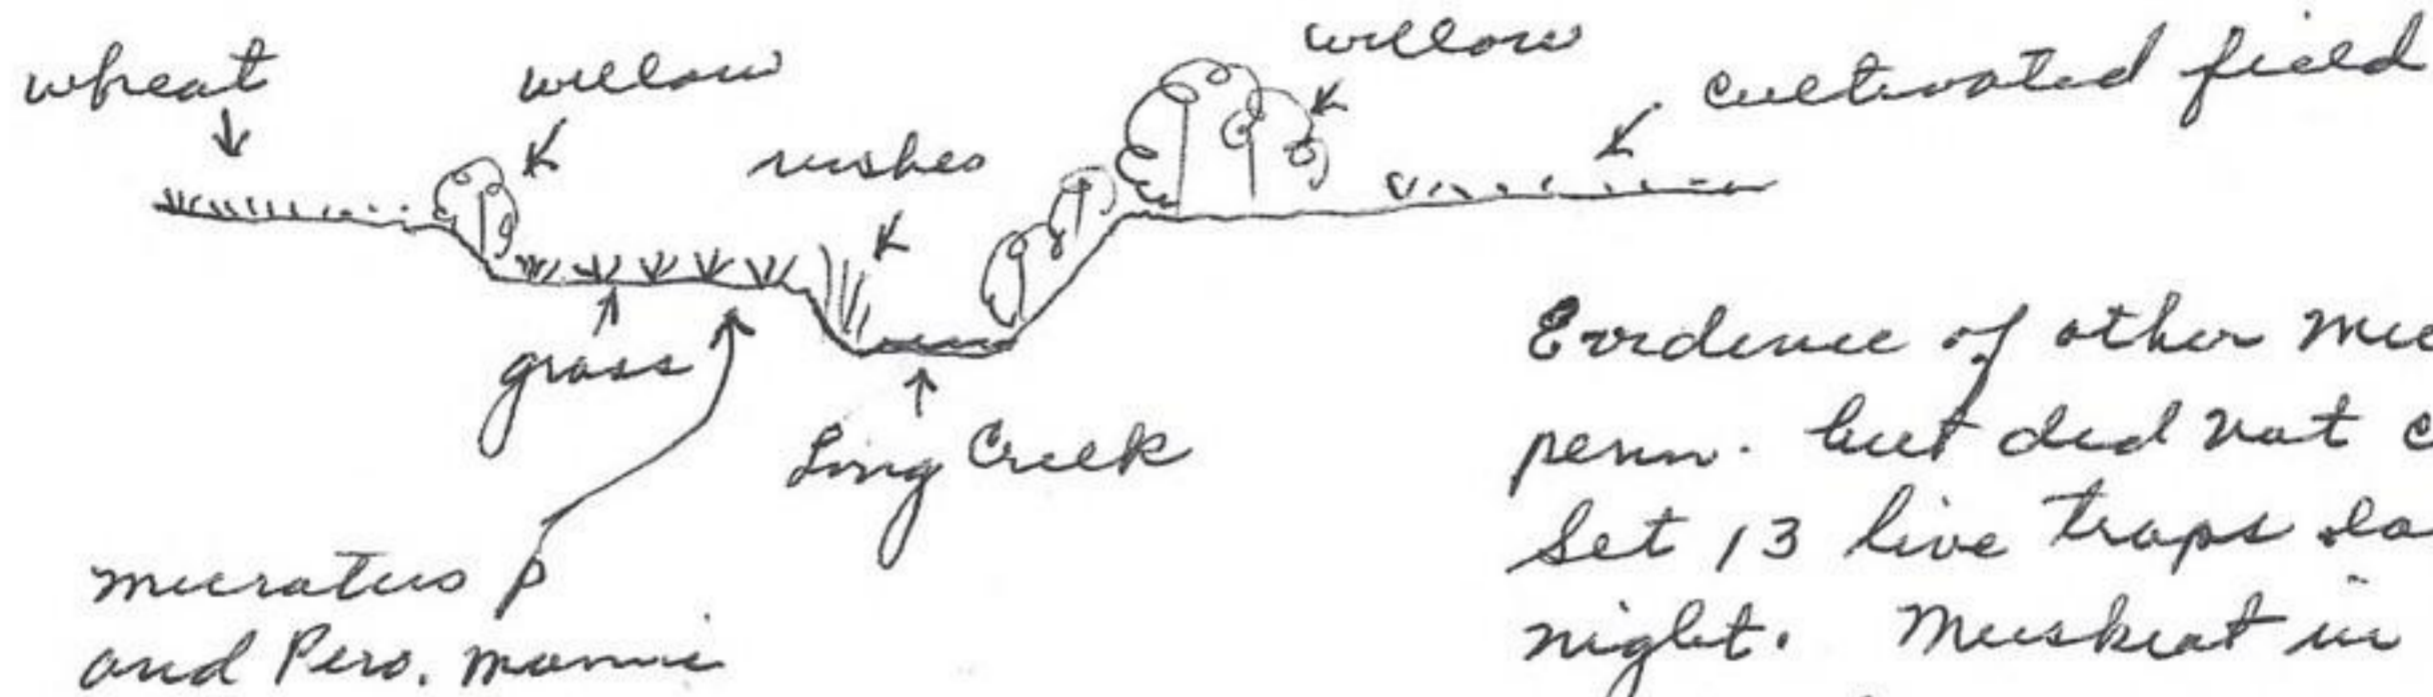 wheat
willow
willow
cultivated field
rushes
grass
Long Creek
microtus p
and Pero. mani
Evidence of other mic
penn. but did not c
Set 13 live traps
night. Muskrat in